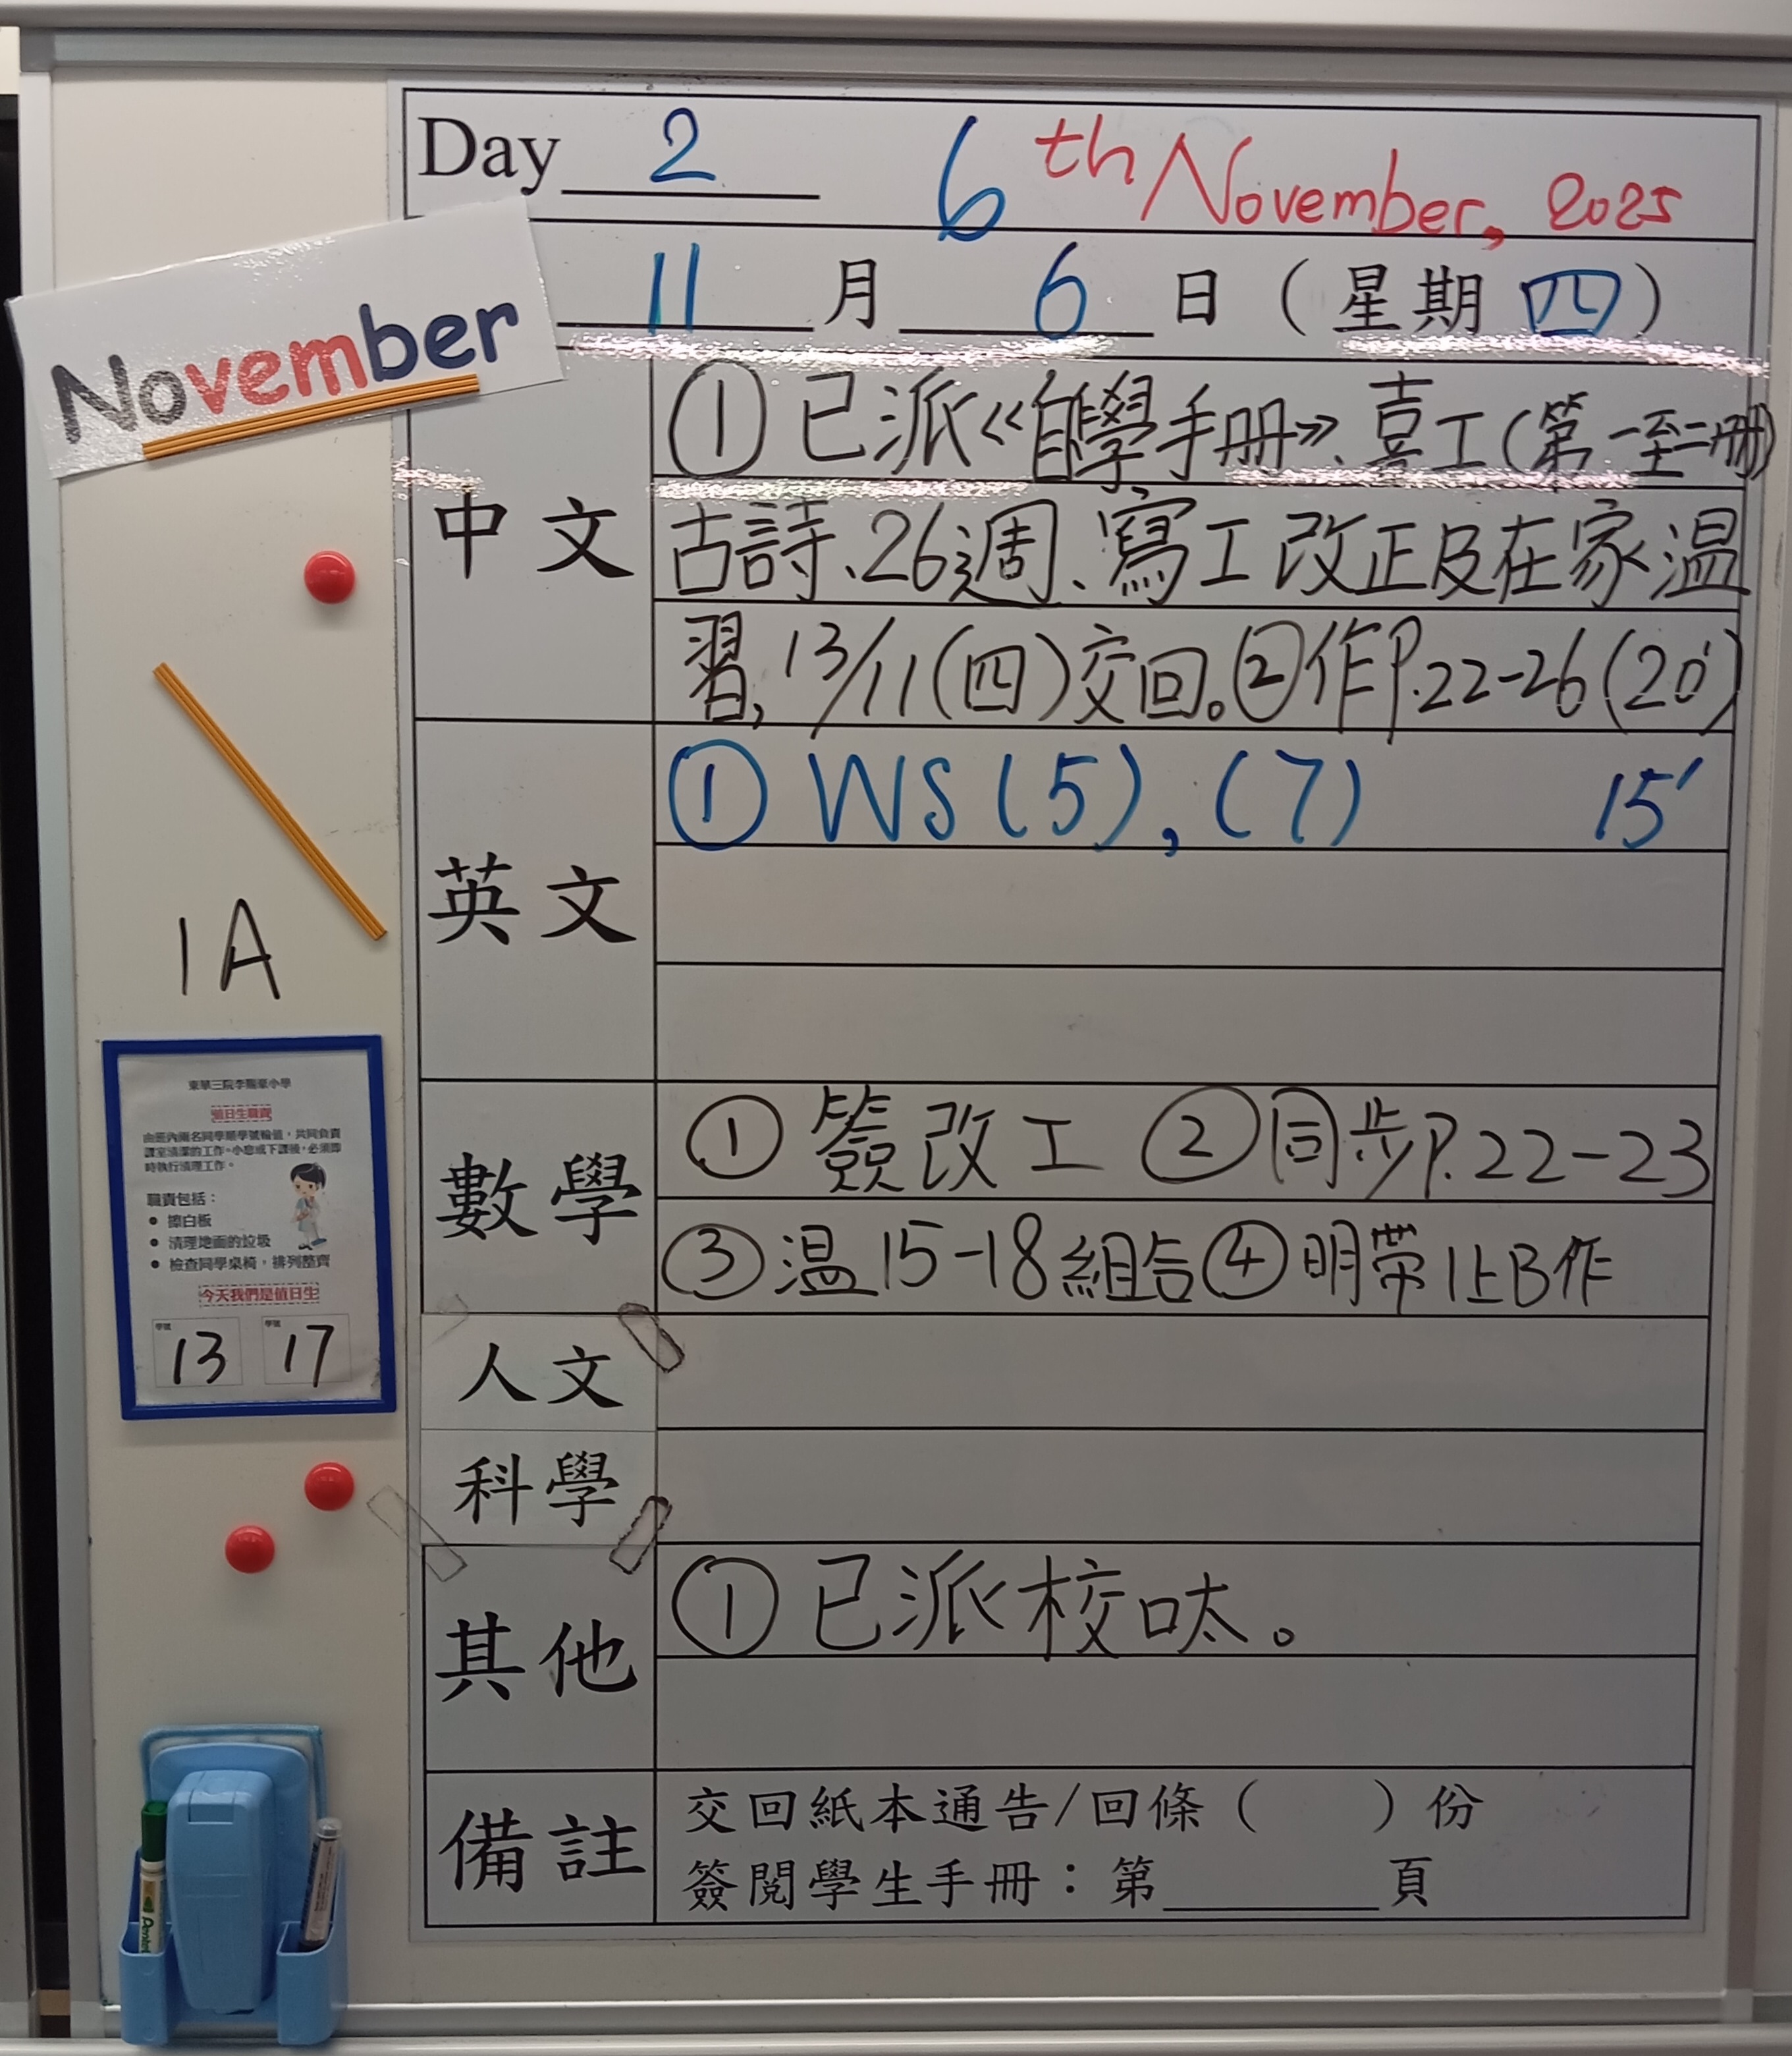 Day 2 6th November, 2025
November
11月6日(星期四)
中文
①已派《自學手冊》、喜工(第一至二冊)
古詩、26週、寫工改正及在家温
習,13/11(四)交回。②作P.22-26(20')
英文
① WS(5),(7) 15'
1A
數學
①簽改工 ②同步P.22-23
③温15-18組合④明帶1上B作
人文
科學
其他
①已派校呔。
備註
交回紙本通告/回條( )份
簽閱學生手冊:第 頁
值日生職責
由班內兩名同學順學號輪值,共同負責
課室清潔的工作。小息或下課後,必須即
時執行清理工作。
職責包括:
● 擦白板
● 清理地面的垃圾
● 檢查同學桌椅,排列整齊
今天我們是值日生
學號 學號
13 17
Pentel